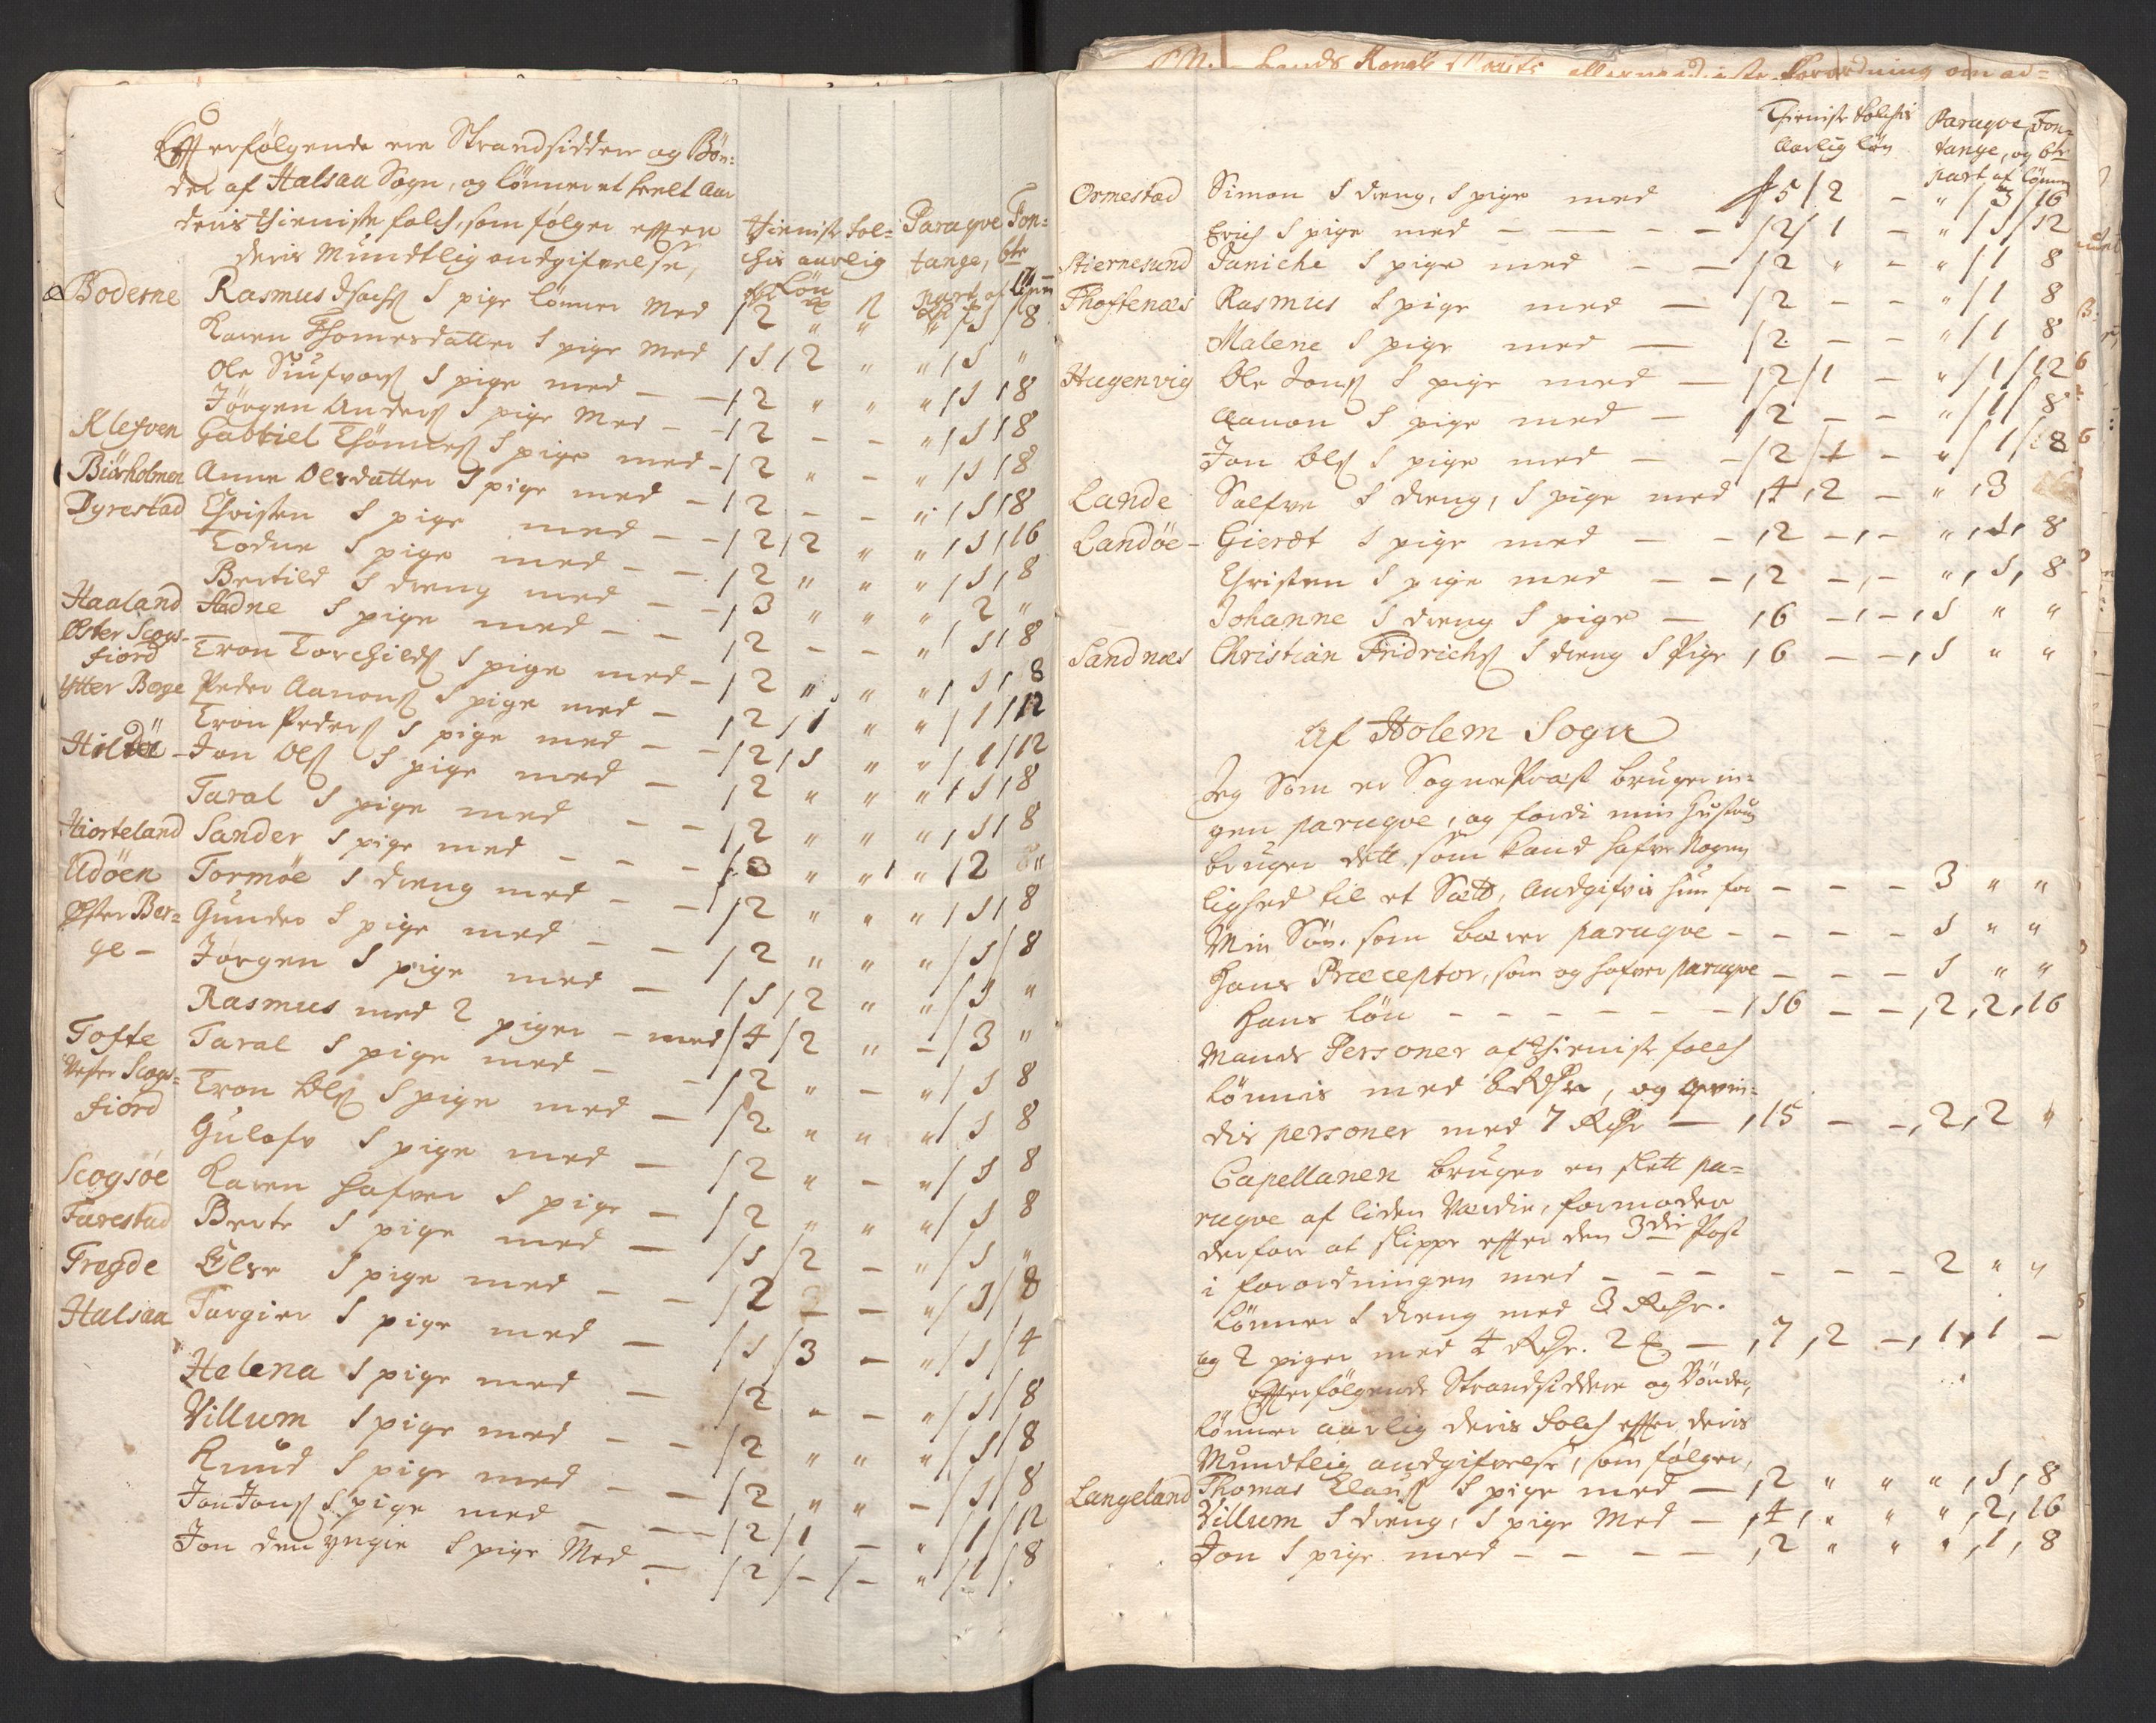 Efterfølgende ere Strandsiddere og Bøn-
der af Halsaa Sogn, og lønner et heelt Aar
deris thieniste folch, som følger efter
deris Mundtlig andgifvelse,
Thieniste fol-
chis aarlig
Løn
Paraqve Fon-
tange, 6te
part af lønn
Boderne Rasmus Isachs 1 pige lønner Med /2 " " " /1 /8
Karen Thomesdatter 1 pige Med /1 /2 " " /1 "
Ole Siufvors 1 pige med — /2 " " " /1 /8
Jørgen Anders 1 pige Med — /2 – – " /1 /8
Klefven Gabriel Thommes 1 pige med – /2 " – " /1 /8
Biürholmen Anne Olsdatter 1 pige med — /2 – – " /1 /8
Dyrestad Christen 1 pige med – – /2 /2 " " /1 /16
Todne 1 pige med – – /2 " " " /1 /8
Bertild 1 dreng med – – /3 " " " 2 "
Haaland Aadne 1 pige med – – /2 – – " /1 /8
Øster Scogs-
fiord Tron Torchilds 1 pige med – /2 " " " /1 /8
Ytter Berge Peder Aanons 1 pige med – /2 /1 " " /1 /12
Tron Peders 1 pige med – – /2 /1 " " /1 /12
Hilde – Jon Ols 1 pige med — /2 " " " /1 /8
Taral 1 pige med – – /2 " " " /1 /8
Hiorteland Sander 1 pige med – – – /3 " " " /2 "
Udöen Tormöe 1 dreng med – – /2 " " " /1 /8
Øster Ber-
ge – Gunder 1 pige med – – /2 " " " /1 /8
Jørgen 1 pige med – /1 /2 " " /1 "
Rasmus med 2 piger – med /4 /2 " – /3 "
Tofte Taral 1 pige med – – /2 " – " /1 8
Vester Scogs-
fiord Tron Ols 1 pige med — /2 " " " /1 8
Gulofv 1 pige med — /2 " – " /1 8
Scogsøe Karen hafver 1 pige – /2 " " " /1 8
Farestad Berte 1 pige med — /1 /2 – " /1 "
Fregde Else 1 pige med – – /2 – – " /1 /8
Halsaa Targier 1 pige med — /1 /3 – " /1 /4
Helena 1 pige med — /2 " – " /1 /8
Villum 1 pige med – – /2 " " " /1 /8
Knud 1 pige med – – /2 " " – /1 /8
Jon Jons 1 pige med – – /2 /1 – " /1 /12
Jon den yngre 1 pige Med — /2 /– /– " /1 /8
Thieniste folchis
Aarlig løn
Paraqve, Fon-
tange, og 6te
part af lønn
Ormestad Simon 1 dreng, 1 pige med /5 /2 – " /3 /16
Erich 1 pige med – – – – /2 /1 – " /1 /12
Stiernesund Daniche 1 pige med – – /2 " – " /1 8
Thoftenæs Rasmus 1 pige med — /2 – – " /1 8
Malene 1 pige med — /2 – – " /1 8
Hagenvig Ole Jons 1 pige med — /2 /1 – " /1 /12
Aanon 1 pige med — /2 – – " /1 /8
Jon Ols 1 pige med – – /2 /1 – " /1 /8
Lande Salfve 1 dreng, 1 pige med ,4 ,2 – " ,3
Landöe – Gierdt 1 pige med – – ,2 – – " ,1, 8
Christen 1 pige med – – ,2 – – " ,1, 8
Johanne 1 dreng 1 pige – ,6 – – ,1 " "
Sandnæs Christian Fridrichs 1 dreng 1 Pige ,6 – – ,1 " "
Af Holem Sogn
Jeg Som er SognePræst bruger in-
gen paruqve, og fordi min hustru
bruger dett, som kand hafve Nogen
lighed til et Sætt, andgifvis hun for – – – 3 " "
Min Søn, som bærer paruqve – – – – 1 " "
Hans Præceptor, som og hafver paruqve – – – 1 " "
Hans løn – – – – – – – ,16 – – ,2 ,2 ,16
Mands Personer af thieniste folch
lønnis med 8 Rdr, og qvin-
dis personer med 7 Rdr — ,15 – – ,2 ,2 "
Capellanen bruger en slett pa-
ruqve af liden Værdie, formoder
derfore at slippe efter den 3die Post
i forordningen med – – – – – – 2 " "
Lønner 1 dreng med 3 Rdr.
og 2 piger med 4 Rdr. 2 — ,7 ,2 – ,1 ,1 –
Efterfølgende Strandsiddere og Bønder,
lønner aarlig deris folch efter deris
Mundtlig andgifvelse, som følger,
Langeland Thomas Claus 1 pige med — ,2 " " " ,1 ,8
Villum 1 dreng, 1 pige Med — ,4, " " " ,2 ,16
Jon 1 pige med – – – – ,2 " " " ,1 ,8